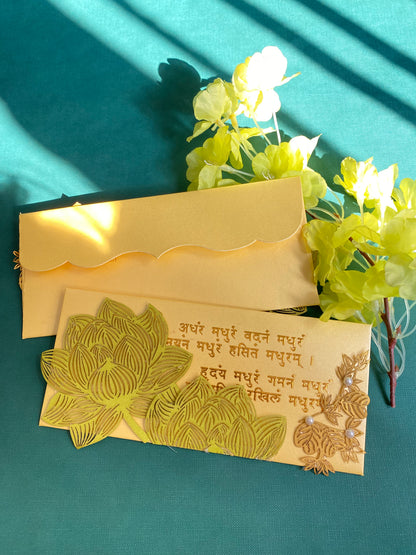 अधरं मधुरं वदनं मधुरं
नयनं मधुरं हसितं मधुरम् ।
हृदयं मधुरं गमनं मधुरं
मधुरम्